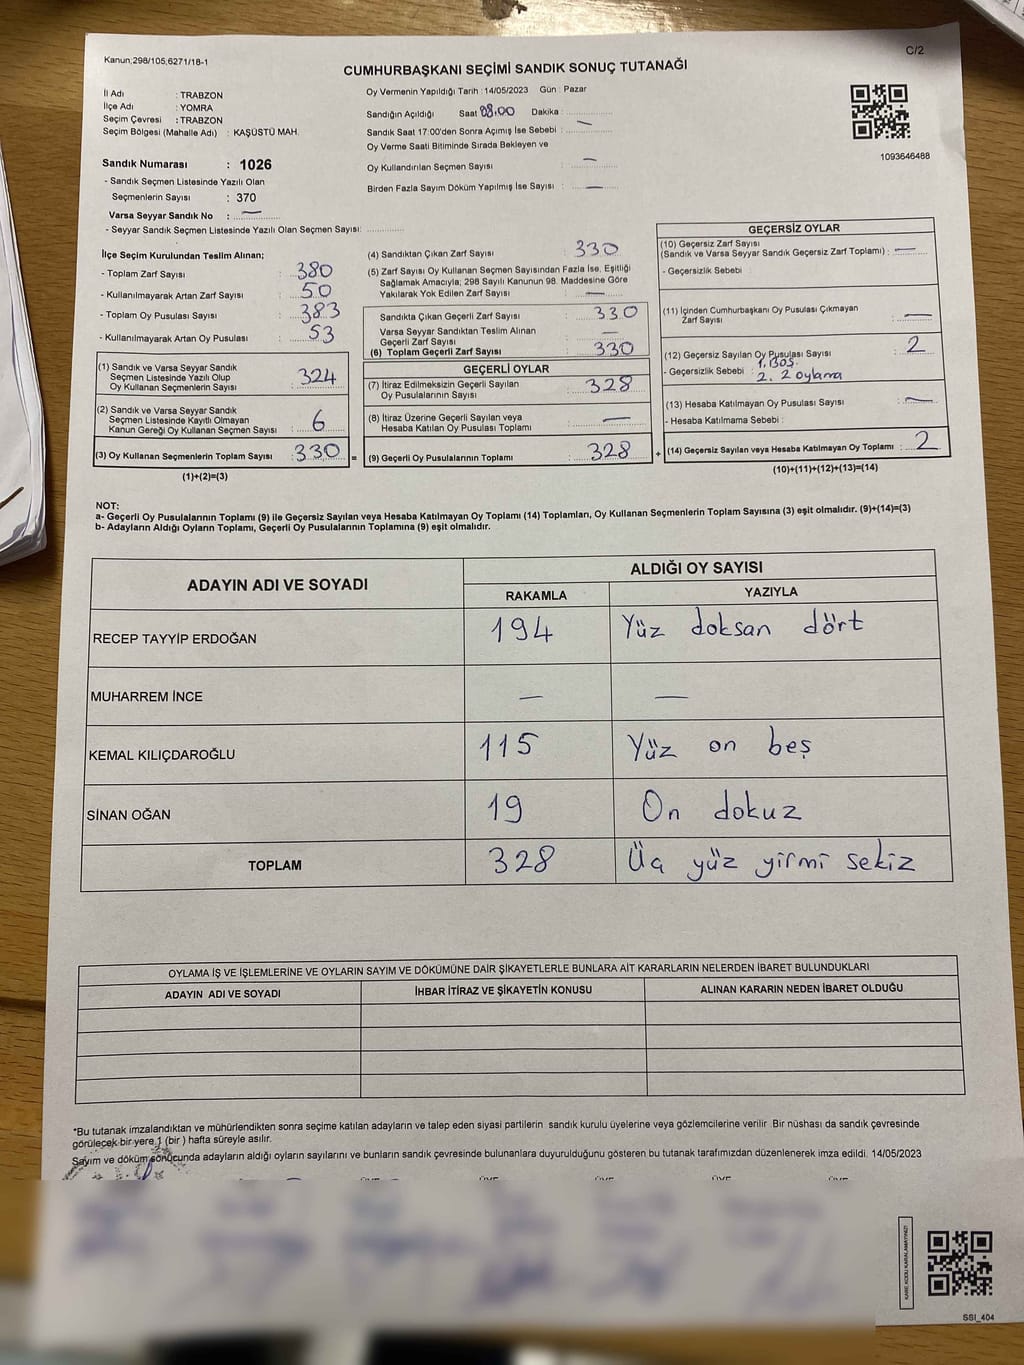 Kanun;298/105,6271/18-1
C/2
CUMHURBAŞKANI SEÇİMİ SANDIK SONUÇ TUTANAĞI
İl Adı : TRABZON
İlçe Adı : YOMRA
Seçim Çevresi : TRABZON
Seçim Bölgesi (Mahalle Adı) : KAŞÜSTÜ MAH.
Sandık Numarası : 1026
- Sandık Seçmen Listesinde Yazılı Olan
Seçmenlerin Sayısı : 370
Varsa Seyyar Sandık No : —
- Seyyar Sandık Seçmen Listesinde Yazılı Olan Seçmen Sayısı:
Oy Vermenin Yapıldığı Tarih : 14/05/2023 Gün : Pazar
Sandığın Açıldığı Saat 08.00 Dakika :
Sandık Saat 17:00'den Sonra Açımış İse Sebebi : —
Oy Verme Saati Bitiminde Sırada Bekleyen ve
Oy Kullandırılan Seçmen Sayısı : —
Birden Fazla Sayım Döküm Yapılmış İse Sayısı : —
1093646488
İlçe Seçim Kurulundan Teslim Alınan;
- Toplam Zarf Sayısı : 380
- Kullanılmayarak Artan Zarf Sayısı : 50
- Toplam Oy Pusulası Sayısı : 383
- Kullanılmayarak Artan Oy Pusulası : 53
(1) Sandık ve Varsa Seyyar Sandık
Seçmen Listesinde Yazılı Olup
Oy Kullanan Seçmenlerin Sayısı : 324
(2) Sandık ve Varsa Seyyar Sandık
Seçmen Listesinde Kayıtlı Olmayan
Kanun Gereği Oy Kullanan Seçmen Sayısı : 6
(3) Oy Kullanan Seçmenlerin Toplam Sayısı : 330 =
(1)+(2)=(3)
(4) Sandıktan Çıkan Zarf Sayısı : 330
(5) Zarf Sayısı Oy Kullanan Seçmen Sayısından Fazla İse, Eşitliği
Sağlamak Amacıyla; 298 Sayılı Kanunun 98. Maddesine Göre
Yakılarak Yok Edilen Zarf Sayısı : —
Sandıkta Çıkan Geçerli Zarf Sayısı : 330
Varsa Seyyar Sandıktan Teslim Alınan
Geçerli Zarf Sayısı : —
(6) Toplam Geçerli Zarf Sayısı : 330
GEÇERLİ OYLAR
(7) İtiraz Edilmeksizin Geçerli Sayılan
Oy Pusulalarının Sayısı : 328
(8) İtiraz Üzerine Geçerli Sayılan veya
Hesaba Katılan Oy Pusulası Toplamı : —
(9) Geçerli Oy Pusulalarının Toplamı : 328 +
GEÇERSİZ OYLAR
(10) Geçersiz Zarf Sayısı
(Sandık ve Varsa Seyyar Sandık Geçersiz Zarf Toplamı) : —
- Geçersizlik Sebebi :
(11) İçinden Cumhurbaşkanı Oy Pusulası Çıkmayan
Zarf Sayısı : —
(12) Geçersiz Sayılan Oy Pusulası Sayısı : 2
- Geçersizlik Sebebi : 1. Boş
2. 2 oylama
(13) Hesaba Katılmayan Oy Pusulası Sayısı : —
- Hesaba Katılmama Sebebi :
(14) Geçersiz Sayılan veya Hesaba Katılmayan Oy Toplamı : 2
(10)+(11)+(12)+(13)=(14)
NOT:
a- Geçerli Oy Pusulalarının Toplamı (9) ile Geçersiz Sayılan veya Hesaba Katılmayan Oy Toplamı (14) Toplamları, Oy Kullanan Seçmenlerin Toplam Sayısına (3) eşit olmalıdır. (9)+(14)=(3)
b- Adayların Aldığı Oyların Toplamı, Geçerli Oy Pusulalarının Toplamına (9) eşit olmalıdır.
ADAYIN ADI VE SOYADI ALDIĞI OY SAYISI
RAKAMLA YAZIYLA
RECEP TAYYİP ERDOĞAN 194 Yüz doksan dört
MUHARREM İNCE — —
KEMAL KILIÇDAROĞLU 115 Yüz on beş
SİNAN OĞAN 19 On dokuz
TOPLAM 328 Üç yüz yirmi sekiz
OYLAMA İŞ VE İŞLEMLERİNE VE OYLARIN SAYIM VE DÖKÜMÜNE DAİR ŞİKAYETLERLE BUNLARA AİT KARARLARIN NELERDEN İBARET BULUNDUKLARI
ADAYIN ADI VE SOYADI İHBAR İTİRAZ VE ŞİKAYETİN KONUSU ALINAN KARARIN NEDEN İBARET OLDUĞU
*Bu tutanak imzalandıktan ve mühürlendikten sonra seçime katılan adayların ve talep eden siyasi partilerin sandık kurulu üyelerine veya gözlemcilerine verilir. Bir nüshası da sandık çevresinde
görülecek bir yere 1 (bir ) hafta süreyle asılır.
Sayım ve döküm sonucunda adayların aldığı oyların sayılarını ve bunların sandık çevresinde bulunanlara duyurulduğunu gösteren bu tutanak tarafımızdan düzenlenerek imza edildi. 14/05/2023
KARE KODU KARALAMAYINIZ!
SSI_404